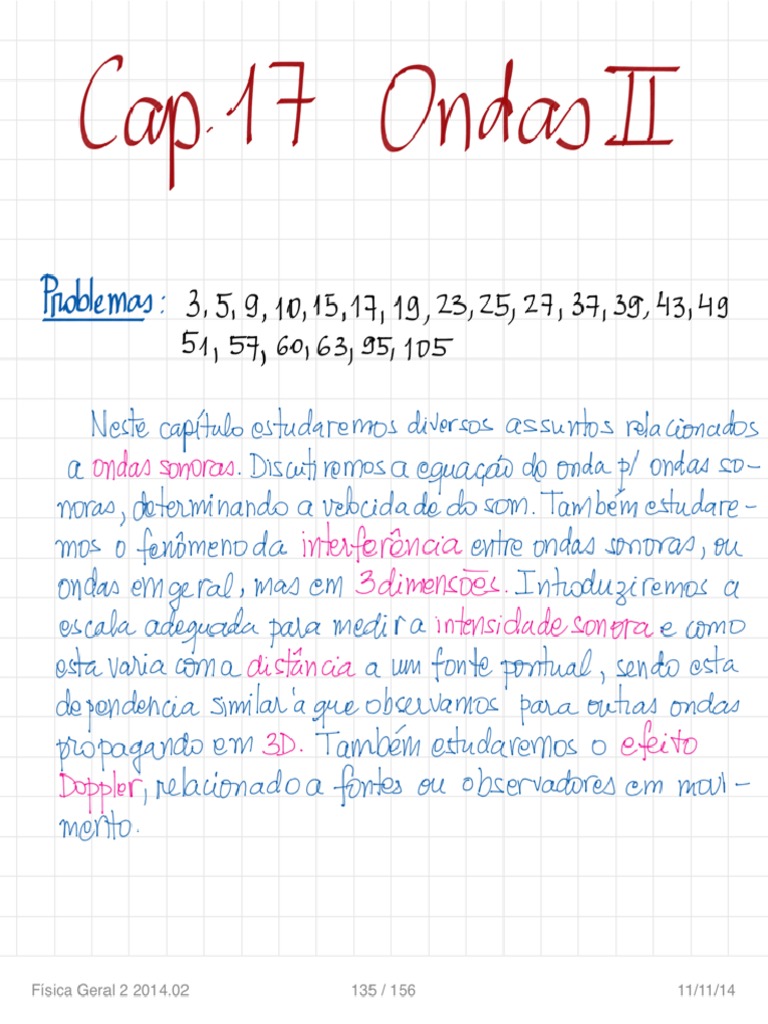 Cap. 17 Ondas II
Problemas: 3, 5, 9, 10, 15, 17, 19, 23, 25, 27, 37, 39, 43, 49
51, 57, 60, 63, 95, 105
Neste capítulo estudaremos diversos assuntos relacionados
a ondas sonoras. Discutiremos a equação de onda p/ ondas so-
noras, determinando a velocidade do som. Também estudare-
mos o fenômeno da interferência entre ondas sonoras, ou
ondas em geral, mas em 3 dimensões. Introduziremos a
escala adequada para medir a intensidade sonora e como
esta varia com a distância a um fonte pontual, sendo esta
dependencia similar à que observamos para outras ondas
propagando em 3D. Também estudaremos o efeito
Doppler, relacionado a fontes ou observadores em movi-
mento.
Física Geral 2 2014.02 135 / 156 11/11/14